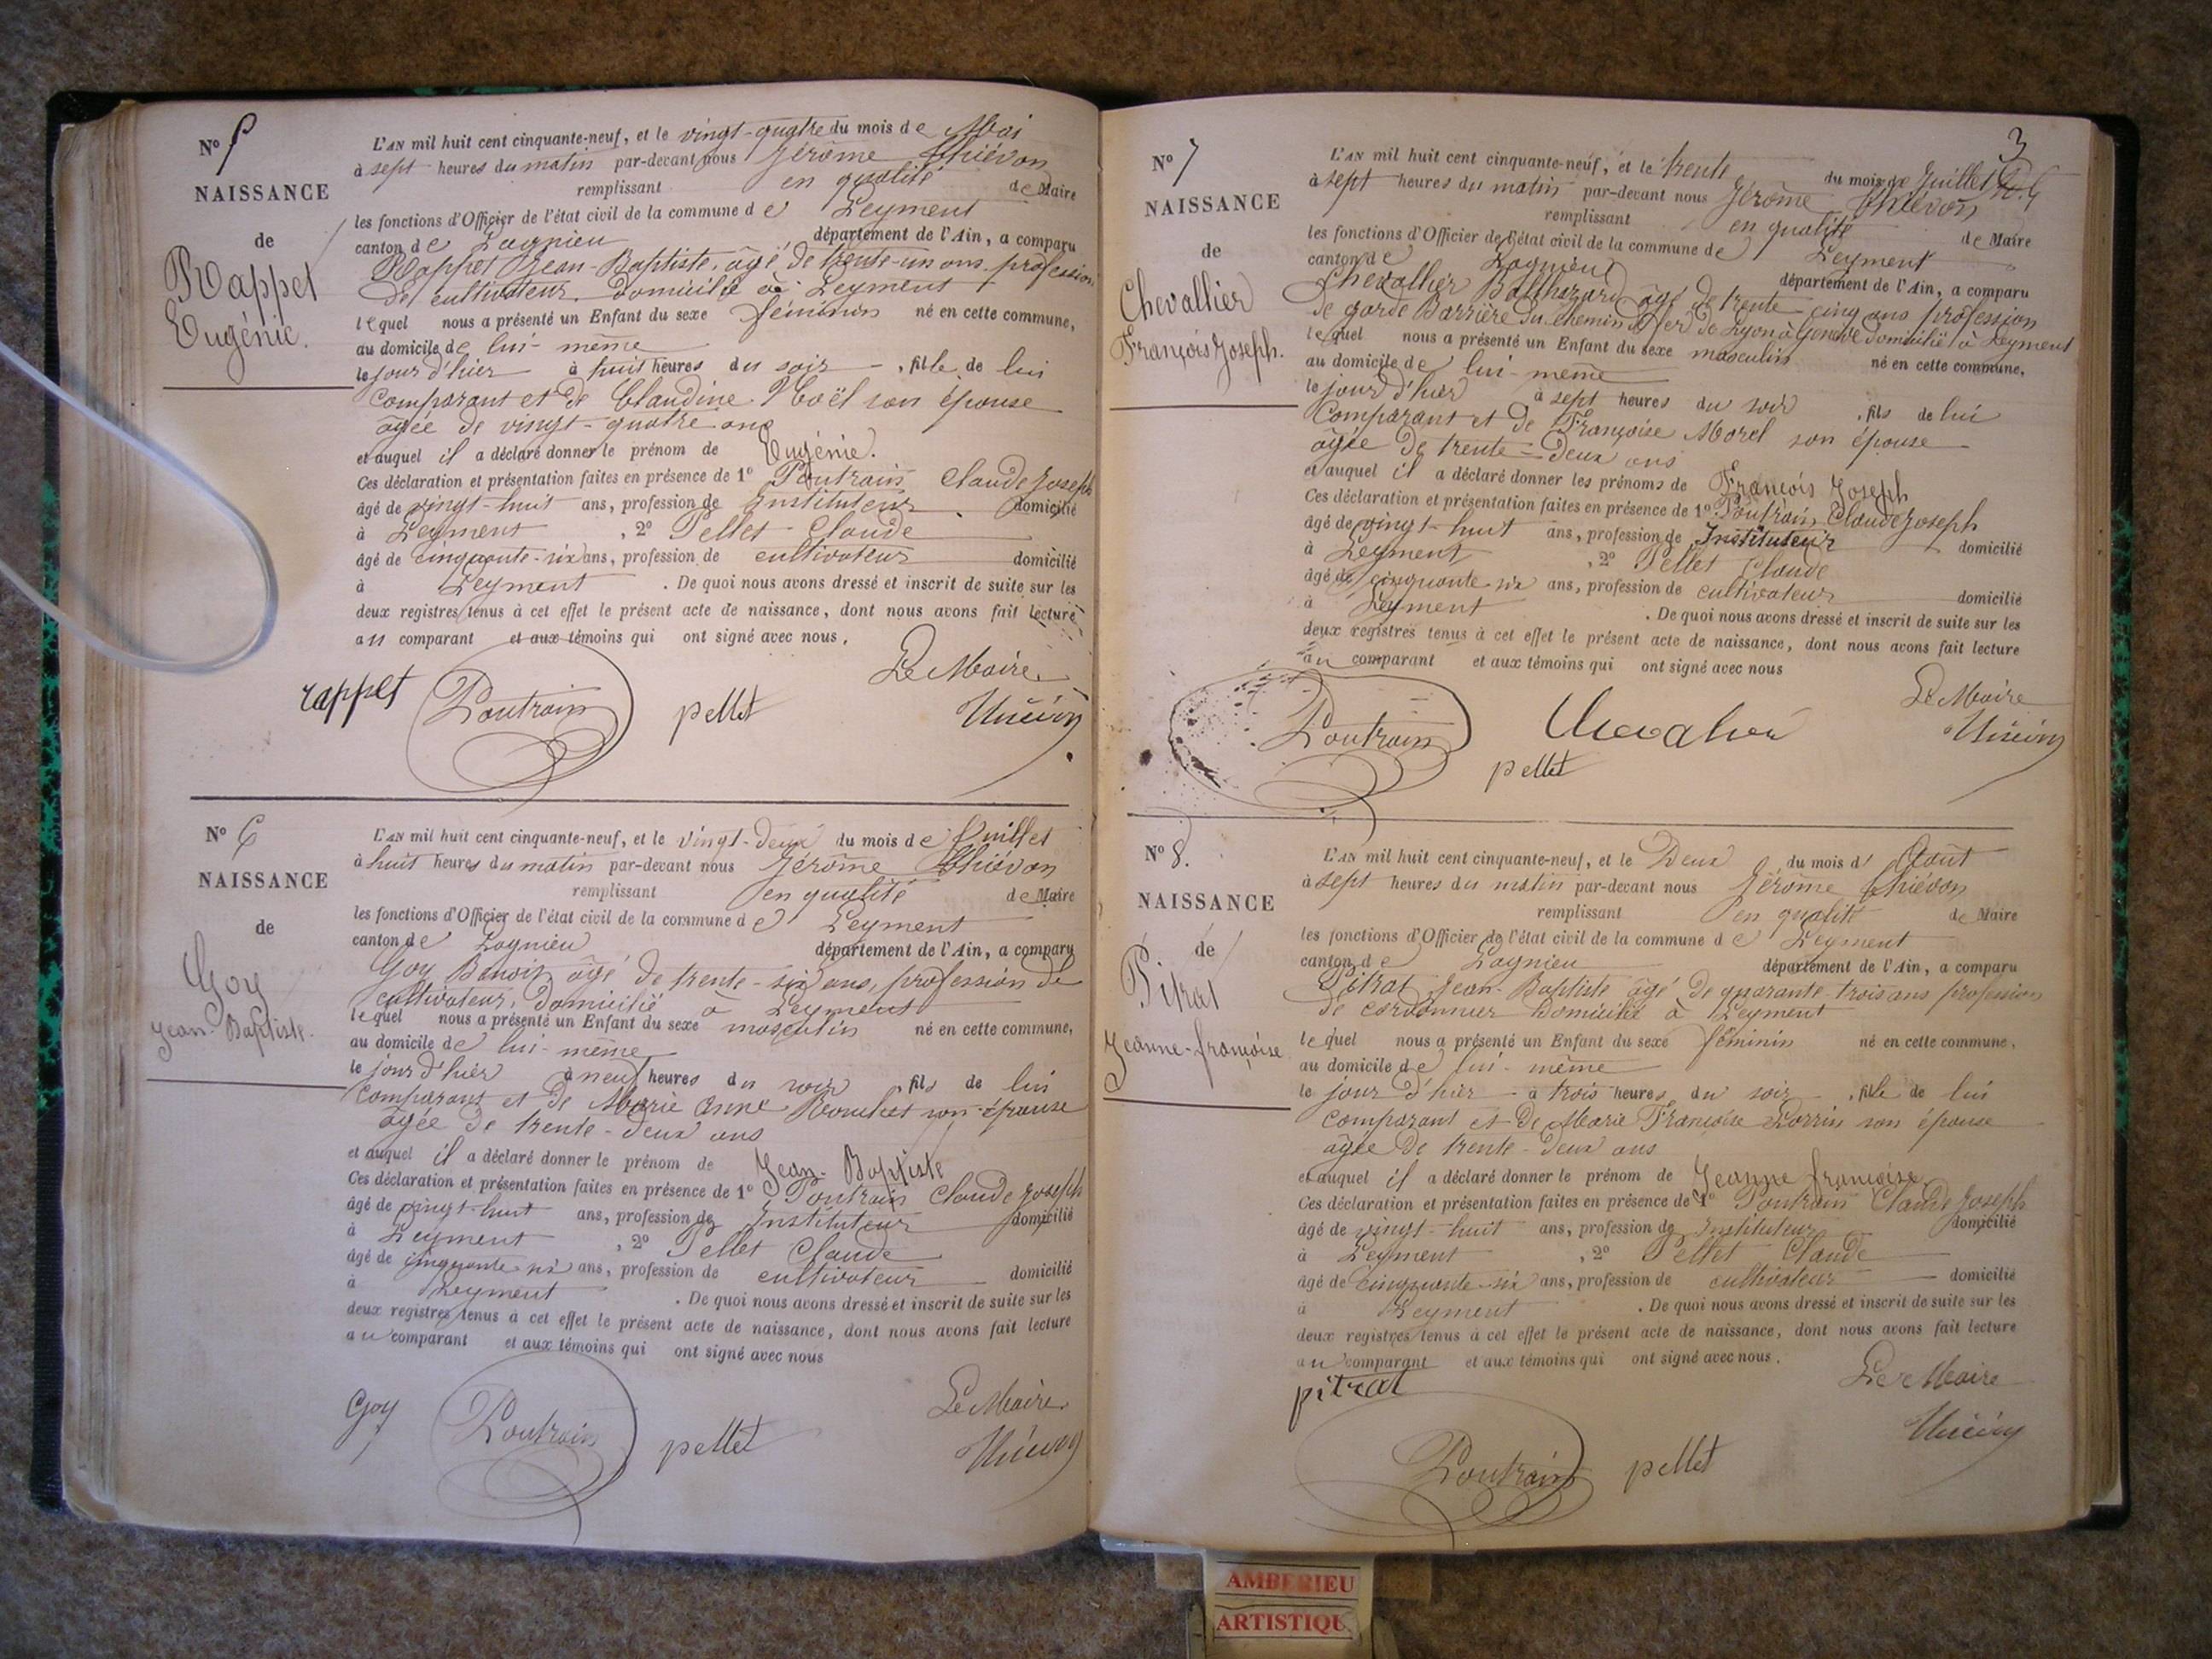 N° 5
NAISSANCE
de
Rappet
Eugénie.
L'AN mil huit cent cinquante-neuf, et le vingt-quatre du mois de Mai
à sept heures du matin par-devant nous Jérôme Thiévon
remplissant en qualité de Maire
les fonctions d'Officier de l'état civil de la commune de Leyment
canton de Lagnieu département de l'Ain, a comparu
Rappet Jean-Baptiste, âgé de trente-un ans profession
de cultivateur domicilié à Leyment
lequel nous a présenté un Enfant du sexe féminin né en cette commune,
au domicile de lui-même
le jour d'hier à huit heures du soir, fille de lui
comparant et de Claudine Noël son épouse
âgée de vingt-quatre ans
et auquel il a déclaré donner le prénom de Eugénie.
Ces déclaration et présentation faites en présence de 1° Poutrain Claude Joseph
âgé de vingt-huit ans, profession de Instituteur domicilié
à Leyment, 2° Pellet Claude
âgé de cinquante-six ans, profession de cultivateur domicilié
à Leyment. De quoi nous avons dressé et inscrit de suite sur les
deux registres tenus à cet effet le présent acte de naissance, dont nous avons fait lecture
au comparant et aux témoins qui ont signé avec nous.
Le Maire
rappet Poutrain pellet Thiévon
N° 6
NAISSANCE
de
Goy
Jean-Baptiste.
L'AN mil huit cent cinquante-neuf, et le vingt-deux du mois de Juillet
à huit heures du matin par-devant nous Jérôme Thiévon
remplissant en qualité de Maire
les fonctions d'Officier de l'état civil de la commune de Leyment
canton de Lagnieu département de l'Ain, a comparu
Goy Benoit âgé de trente-six ans, profession de
cultivateur, domicilié à Leyment
lequel nous a présenté un Enfant du sexe masculin né en cette commune,
au domicile de lui-même
le jour d'hier à neuf heures du soir, fils de lui
comparant et de Marie Anne son épouse
âgée de trente-deux ans
et auquel il a déclaré donner le prénom de Jean-Baptiste
Ces déclaration et présentation faites en présence de 1° Poutrain Claude Joseph
âgé de vingt-huit ans, profession de Instituteur domicilié
à Leyment, 2° Pellet Claude
âgé de cinquante six ans, profession de cultivateur domicilié
à Leyment. De quoi nous avons dressé et inscrit de suite sur les
deux registres tenus à cet effet le présent acte de naissance, dont nous avons fait lecture
au comparant et aux témoins qui ont signé avec nous
Le Maire
Goy Poutrain pellet Thiévon
3
N° 7
NAISSANCE
de
Chevallier
François Joseph.
L'AN mil huit cent cinquante-neuf, et le trente du mois de Juillet
à sept heures du matin par-devant nous Jérôme Thiévon
remplissant en qualité de Maire
les fonctions d'Officier de l'état civil de la commune de Leyment
canton de Lagnieu département de l'Ain, a comparu
Chevallier Balthazard âgé de trente cinq ans profession
de garde Barrière du chemin de fer de Lyon à Genève domicilié à Leyment
lequel nous a présenté un Enfant du sexe masculin né en cette commune,
au domicile de lui-même
le jour d'hier à sept heures du soir, fils de lui
comparant et de Françoise Morel son épouse
âgée de trente-deux ans
et auquel il a déclaré donner les prénoms de François Joseph
Ces déclaration et présentation faites en présence de 1° Poutrain Claude Joseph
âgé de vingt-huit ans, profession de Instituteur domicilié
à Leyment, 2° Pellet Claude
âgé de cinquante six ans, profession de cultivateur domicilié
à Leyment. De quoi nous avons dressé et inscrit de suite sur les
deux registres tenus à cet effet le présent acte de naissance, dont nous avons fait lecture
au comparant et aux témoins qui ont signé avec nous
Le Maire
Poutrain Chevalier Thiévon
pellet
N° 8.
NAISSANCE
de
Pitrat
Jeanne-françoise
L'AN mil huit cent cinquante-neuf, et le Deux du mois d'Août
à sept heures du matin par-devant nous Jérôme Thiévon
remplissant en qualité de Maire
les fonctions d'Officier de l'état civil de la commune de Leyment
canton de Lagnieu département de l'Ain, a comparu
Pitrat Jean-Baptiste âgé de quarante-trois ans profession
de cordonnier Domicilié à Leyment
lequel nous a présenté un Enfant du sexe féminin né en cette commune,
au domicile de lui-même
le jour d'hier à trois heures du soir, fille de lui
comparant et de Marie Françoise son épouse
âgée de trente-deux ans
et auquel il a déclaré donner le prénom de Jeanne françoise
Ces déclaration et présentation faites en présence de 1° Poutrain Claude Joseph
âgé de vingt-huit ans, profession de Instituteur domicilié
à Leyment, 2° Pellet Claude
âgé de cinquante-six ans, profession de cultivateur domicilié
à Leyment. De quoi nous avons dressé et inscrit de suite sur les
deux registres tenus à cet effet le présent acte de naissance, dont nous avons fait lecture
au comparant et aux témoins qui ont signé avec nous.
pitrat Le Maire
Poutrain pellet Thiévon
AMBERIEU
ARTISTIQUE